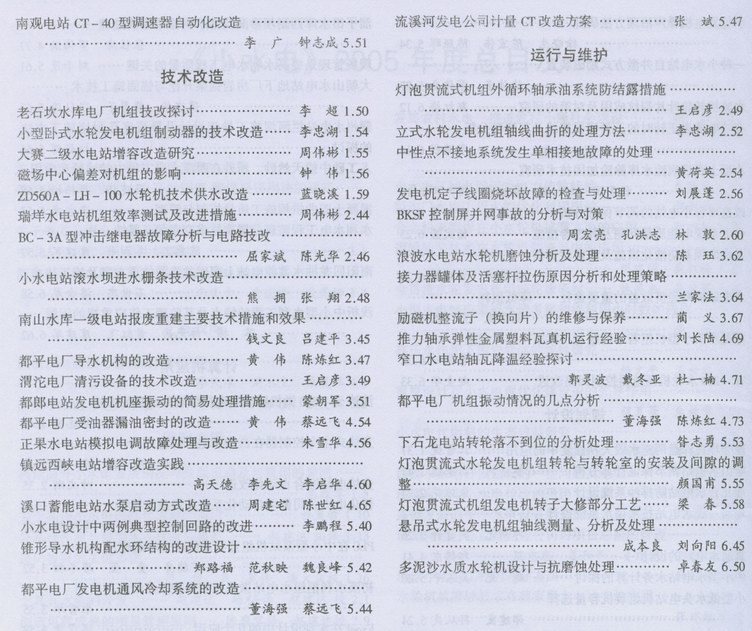 南观电站 CT-40 型调速器自动化改造
李 广 钟志成 5.51
技术改造
老石坎水库电厂机组技改探讨 李 超 1.50
小型卧式水轮发电机组制动器的技术改造 李忠湖 1.54
大赛二级水电站增容改造研究 周伟彬 1.55
磁场中心偏差对机组的影响 钟 伟 1.56
ZD560A-LH-100 水轮机技术供水改造 蓝晓溪 1.59
瑞垟水电站机组效率测试及改进措施 周伟彬 2.44
BC-3A 型冲击继电器故障分析与电路技改
屈家斌 陈光华 2.46
小水电站滚水坝进水栅条技术改造
熊 拥 张 翔 2.48
南山水库一级电站报废重建主要技术措施和效果
钱文良 吕建平 3.45
都平电厂导水机构的改造 黄 伟 陈炼红 3.47
渭沱电厂清污设备的技术改造 王启彦 3.49
都郎电站发电机机座振动的简易处理措施 梁朝军 3.51
都平电厂受油器漏油密封的改造 黄 伟 蔡远飞 4.54
正果水电站模拟电调故障处理与改造 朱雪华 4.56
镇远西峡电站增容改造实践
高天德 李先文 李启华 4.60
溪口蓄能电站水泵启动方式改造 周建宅 陈仕红 4.65
小水电设计中两例典型控制回路的改进 李鹏程 5.40
锥形导水机构配水环结构的改进设计
郑路福 范秋映 魏良峰 5.42
都平电厂发电机通风冷却系统的改造
董海强 蔡远飞 5.44
流溪河发电公司计量 CT 改造方案 张 斌 5.47
运行与维护
灯泡贯流式机组外循环轴承油系统防结露措施
王启彦 2.49
立式水轮发电机组轴线曲折的处理方法 李忠湖 2.52
中性点不接地系统发生单相接地故障的处理
黄荷英 2.54
发电机定子线圈烧坏故障的检查与处理 刘展莲 2.56
BKSF 控制屏并网事故的分析与对策
周宏亮 孔洪志 林 敦 2.60
浪波水电站水轮机磨蚀分析及处理 陈 珏 3.62
接力器罐体及活塞杆拉伤原因分析和处理策略
兰家法 3.64
励磁机整流子(换向片)的维修与保养 蔺 义 3.67
推力轴承弹性金属塑料瓦真机运行经验 刘长陆 4.69
窄口水电站轴瓦降温经验探讨
郭灵波 戴冬亚 杜一楠 4.71
都平电厂机组振动情况的几点分析
董海强 陈炼红 4.73
下石龙电站转轮落不到位的分析处理 昝志勇 5.53
灯泡贯流式水轮发电机组转轮与转轮室的安装及间隙的调
整 颜国甫 5.55
灯泡贯流式机组发电机转子大修部分工艺 梁 春 5.58
悬吊式水轮发电机组轴线测量、分析及处理
成本良 刘向阳 6.45
多泥沙水质水轮机设计与抗磨蚀处理 卓春友 6.50